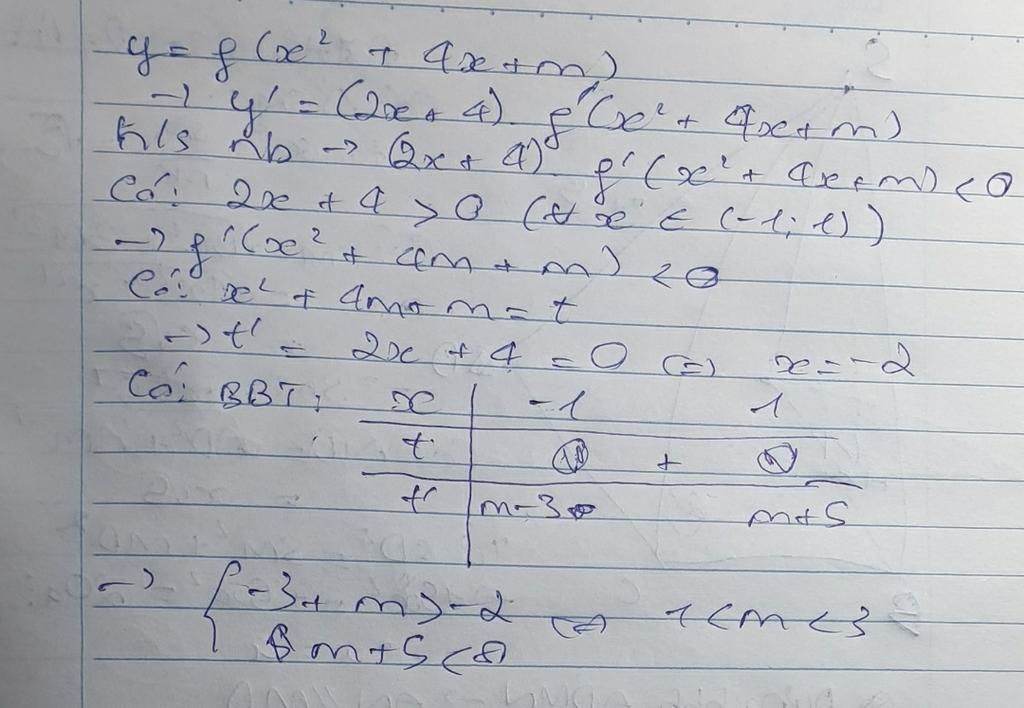 y = f(x² + 4x + m)
→ y' = (2x + 4). f'(x² + 4x + m)
h/s nb → (2x + 4) f'(x² + 4x + m) < 0
Có: 2x + 4 > 0 (∀ x ∈ (-1; 1))
→ f'(x² + 4m + m) < 0
Có: x² + 4m + m = t
→ t' = 2x + 4 = 0 (=) x = -2
Có: BBT: x -1 1
t +
t' m-3 m+5
→ { -3 + m > -2 (=) 1 < m < 3
m + 5 < 8